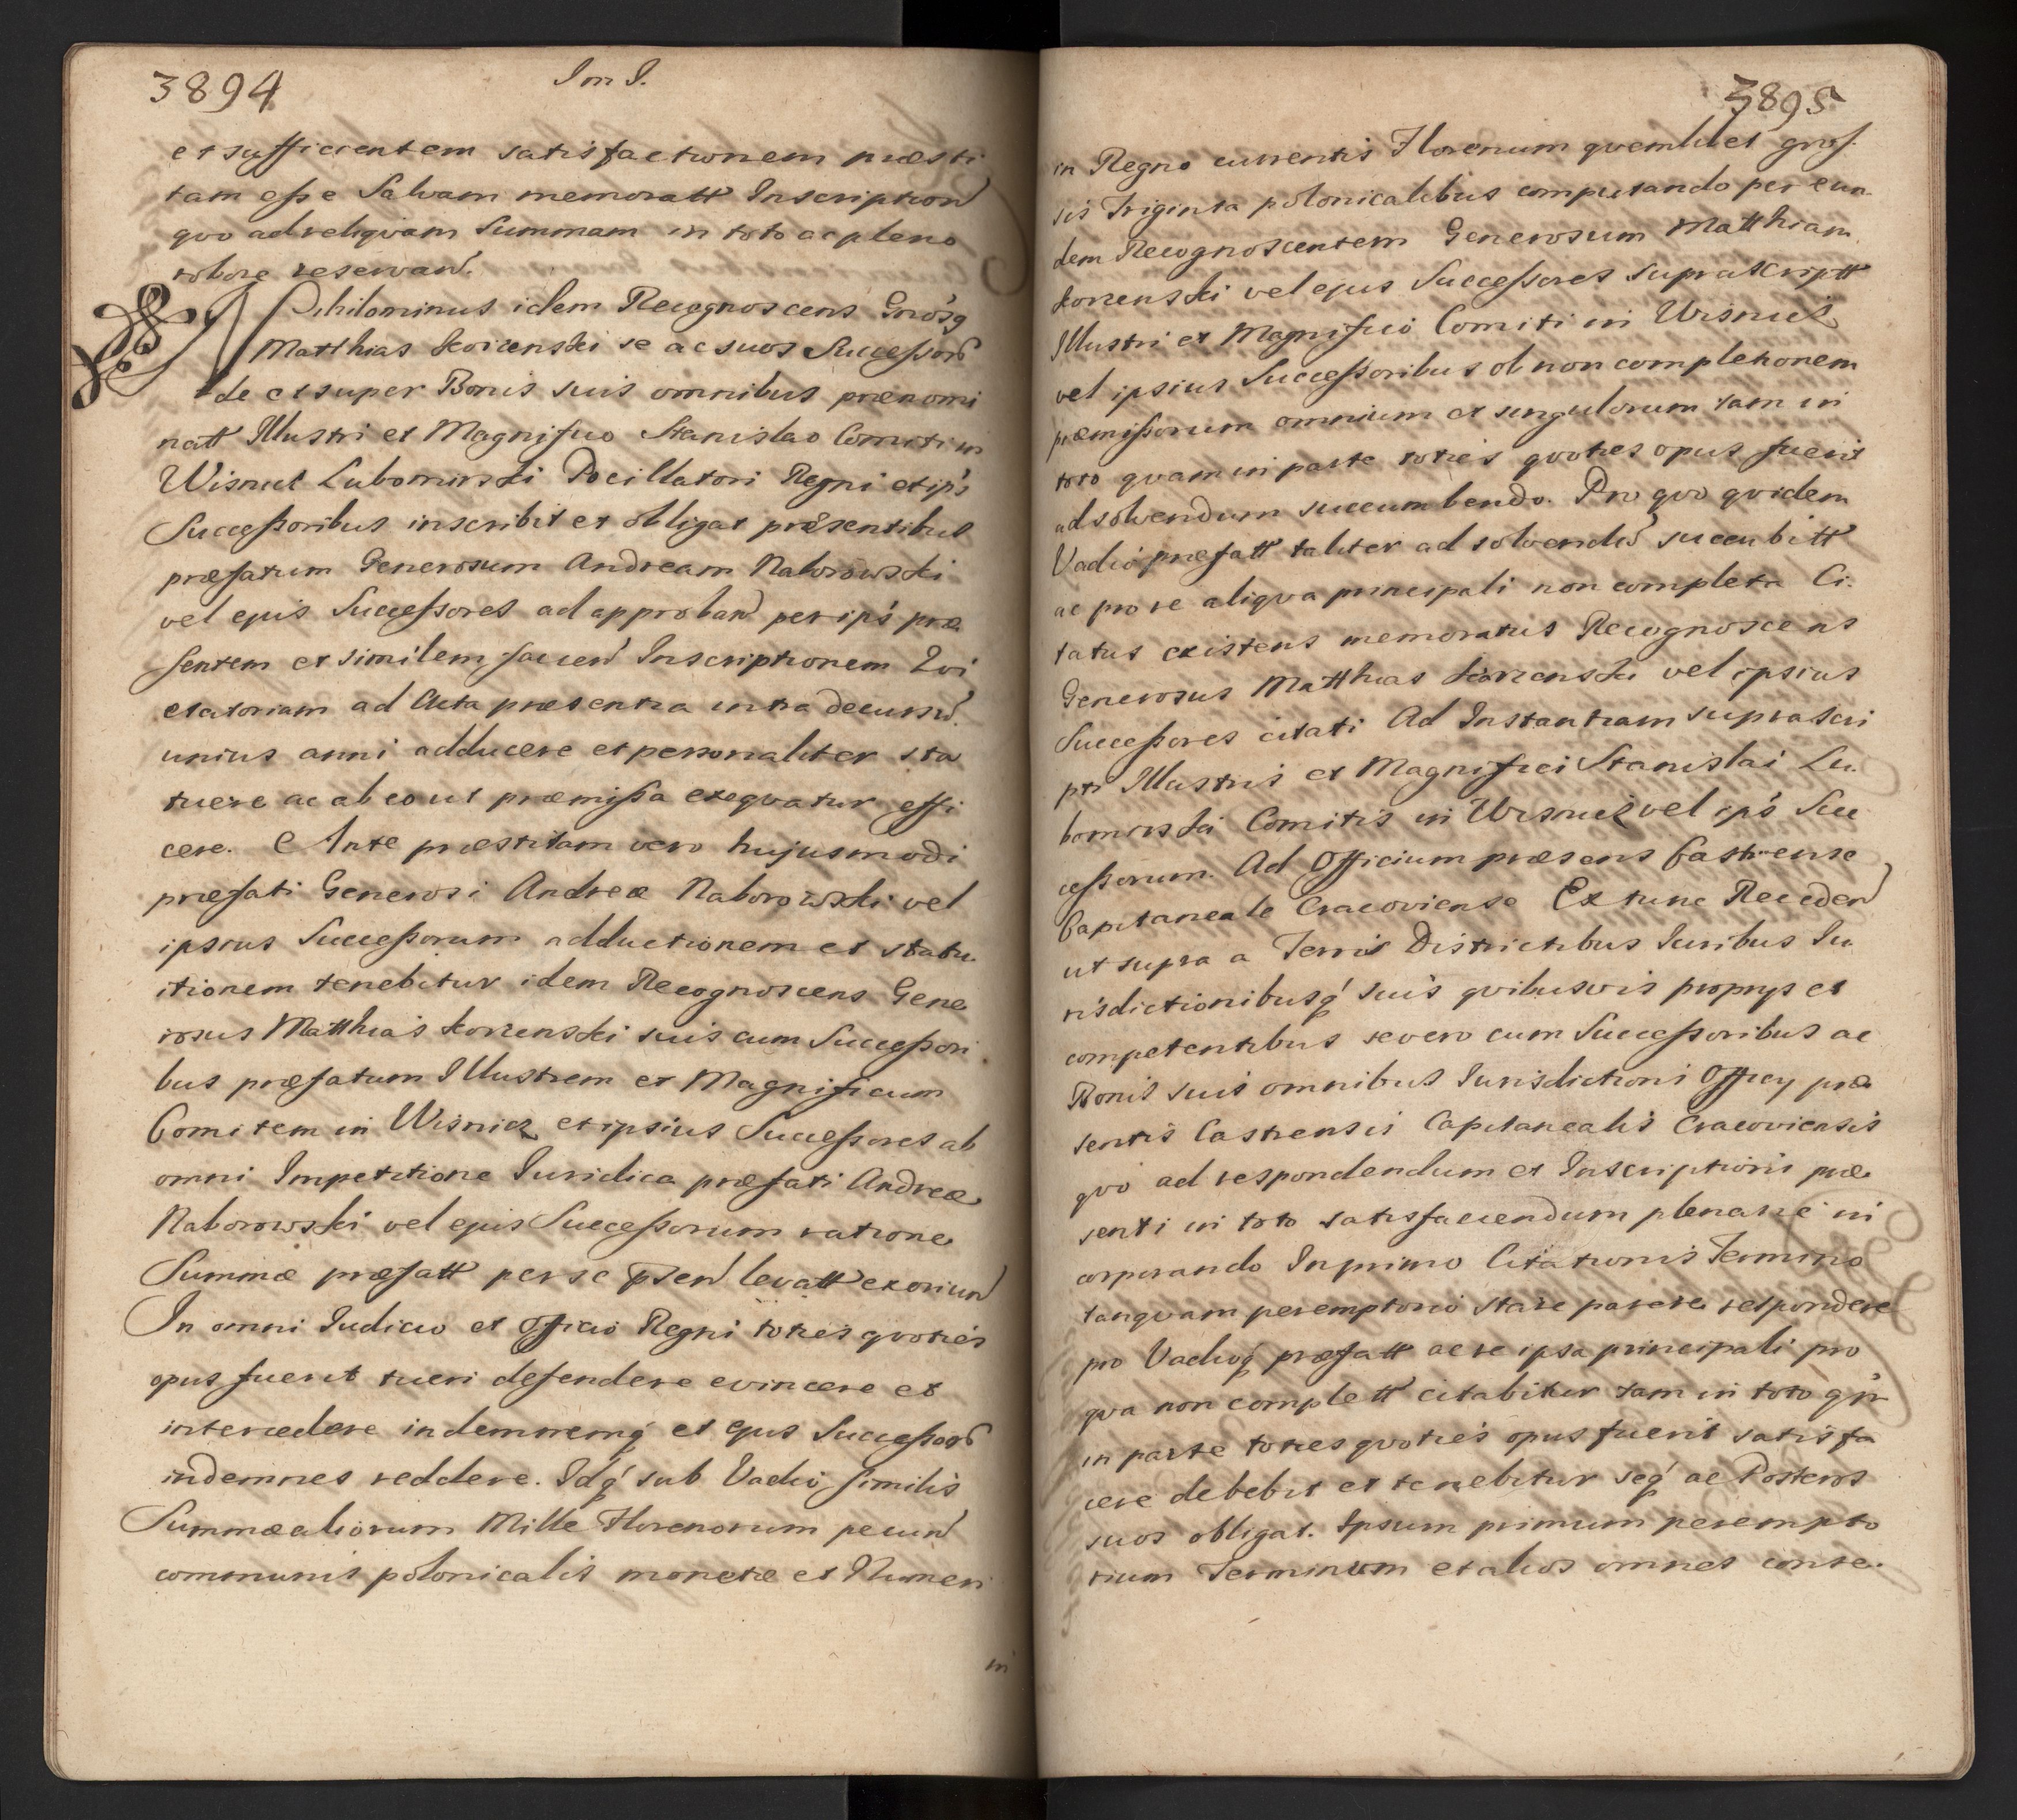 3894
Im I.
et sufficientem satisfactionem præsti
tam esse Salvam memoratt Inscription
qvo ad reliqvam Summam in toto ac pleno
robore reservan̄.
Nihilominus idem Recognoscens Gnősq
Matthias se ac suos Successor̄
de et super Bonis suis omnibus prænomi
natt Illustri et Magnifico Stanislao Comiti in
Wisnicz Lubomirski Pocillatori Regni et ip̄s
Successoribus inscribit et obligat præsentibus
præfatum Generosum Andream Naborowski
vel ejus Successores ad approban̄ per ip̄s præ
sentem et similem facien̄ Inscriptionem Qvi
etatoriam ad Acta præsentia intra decursū
unius anni adducere et personaliter sta
tuere ac ab eo ut præmissa exeqvatur effi
cere. Ante præstitam vero hujusmodi
præfati Generosi Andreæ Naborowski vel
ipsius Successorum adductionem et statu
itionem tenebitur idem Recognoscens Gene
rosus Matthias suis cum Successori
bus præfatum Illustrem et Magnificum
Comitem in Wisnicz et ipsius Successores ab
omni Impetitione Iuridica præfati Andreæ
Naborowski vel ejus Successorum ratione
Summæ præfatt per se p̄sen̄ levatt exoriun̄
In omni Iudicio et officio Regni toties qvoties
opus fuerit tueri defendere evincere et
intercedere indemnemq́ et ejus Successor̄
indemnes reddere. Idq́ sub Vadio similis
Summæ aliorum Mille Florenorum pecun̄
communis polonicalis monetæ et Numeri
in
3895
in Regno currentis Florenum qvemlibet gros.
sis Triginta polonicalibus computando per eun
dem Recognoscentem Generosum Matthiam
vel ejus Successores suprascriptt
Illustri et Magnifico Comiti in Wisnicz
vel ipsius Successoribus ob non completionem
præmissorum omnium et singulorum tam in
toto qvam in parte toties qvoties opus fuerit
ad solvendum succumbendo. Pro qvo qvidem
Vadio præfatt taliter ad solvendū succubitt
ac pro re aliqva principali non completa Ci.
tatus existens memoratus Recognoscens
Generosus Matthias vel ipsius
Successores citati Ad Instantiam suprascri
pti Illustris et Magnifici Stanislai Lu.
bomirski Comitis in Wisnicz vel ip̄s Suc
cessorum. Ad Officium præsens Castrense
Capitaneale Cracoviense Ex tunc Receden̄
ut supra a Terris Districtibus Iuribus Iu
risdictionibusq́ suis qvibusvis proprys et
competentibus se vero cum Successoribus ac
Bonis suis omnibus Iurisdictioni Officy præ
sentis Castrensis Capitanealis Cracoviensis
qvo ad respondendum et Inscriptioni præ
senti in toto satisfaciendum plenarie in
corporando In primo Citationis Termino
tanqvam peremptorio stare parere respondere
pro Vadioq́ præfatt ac re ipsa principali pro
qva non complett citabitur tam in toto q̃m
in parte toties qvoties opus fuerit satisfa
cere debebit et tenebitur seq́ ac Posteros
suos obligat. Ipsum primum perempto
rium Terminum et alios omnes conse.